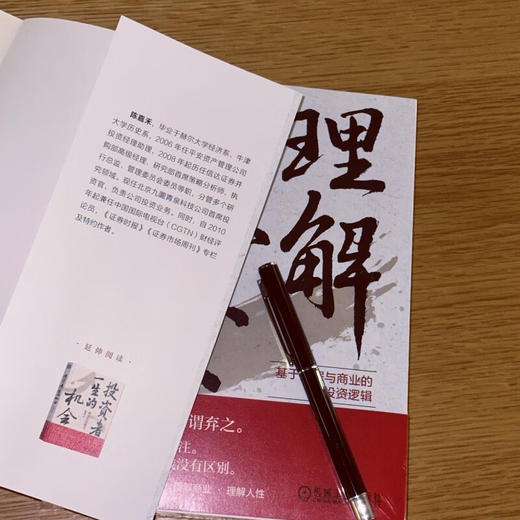 陈嘉禾，毕业于赫尔大学经济系、牛津
大学历史系，2006年任平安资产管理公司
投资经理助理，2008年起历任信达证券并
购部高级经理、研究部首席策略分析师、执
行总监、管理委员会委员等职，分管多个研
究领域。现任北京九圜青泉科技公司首席投
资官，负责公司投资业务，同时，自2010
年起兼任中国国际电视台（CGTN）财经评
论员，《证券时报》《证券市场周刊》专栏
及特约作者。
· 延伸阅读 ·
投资者
一生的
机会
理
解
基于
与商业的
投资逻辑
谓弃之。
注。
没有区别。
理解商业 · 理解人性
机械